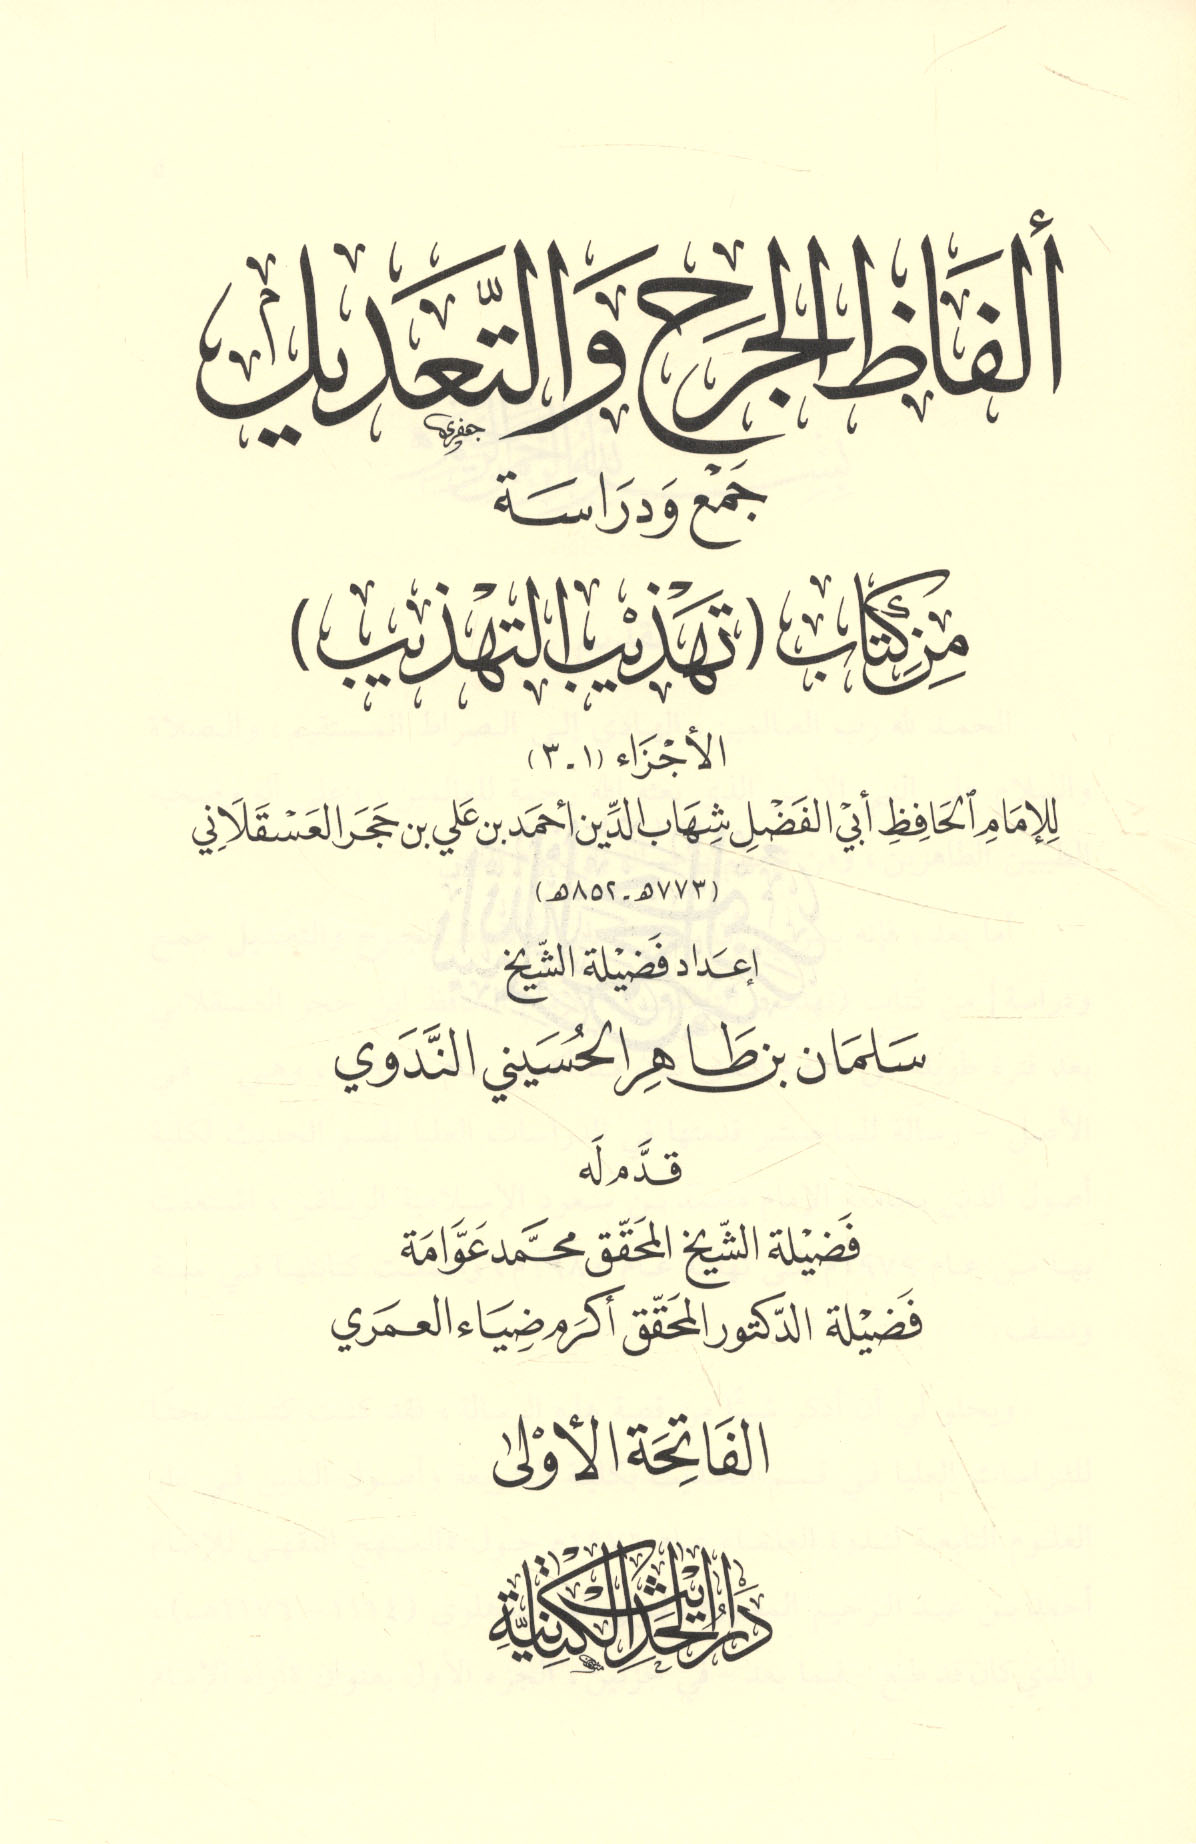 ألفَاظ الجَرحِ وَالتَّعَديل
جعفري
جَمْع وَدرَاسَة
مِنْ كِتَاب (تَهذيْب التهذيب)
الأجْزَاء (١ ـ ٣)
لِلإمَامِ الحَافِظِ أبيْ الفَضْلِ شِهَاب الدِّين أحمَد بن عَلي بن حَجَر العَسْقَلَاني
(٧٧٣هـ ـ ٨٥٢هـ)
إعدَاد فَضيْلة الشّيخ
سَلمَان بن طَاهِر الحُسَيني النَّدَوي
قدَّم لَه
فَضيْلة الشّيخ المحَقّق محمَّد عَوَّامَة
فَضيْلة الدّكتور المحَقّق أكرَم ضِيَاء العمَري
الفَاتِحَة الأوْلىٰ
دَارُ الحَديْث الكتَّانيَّة